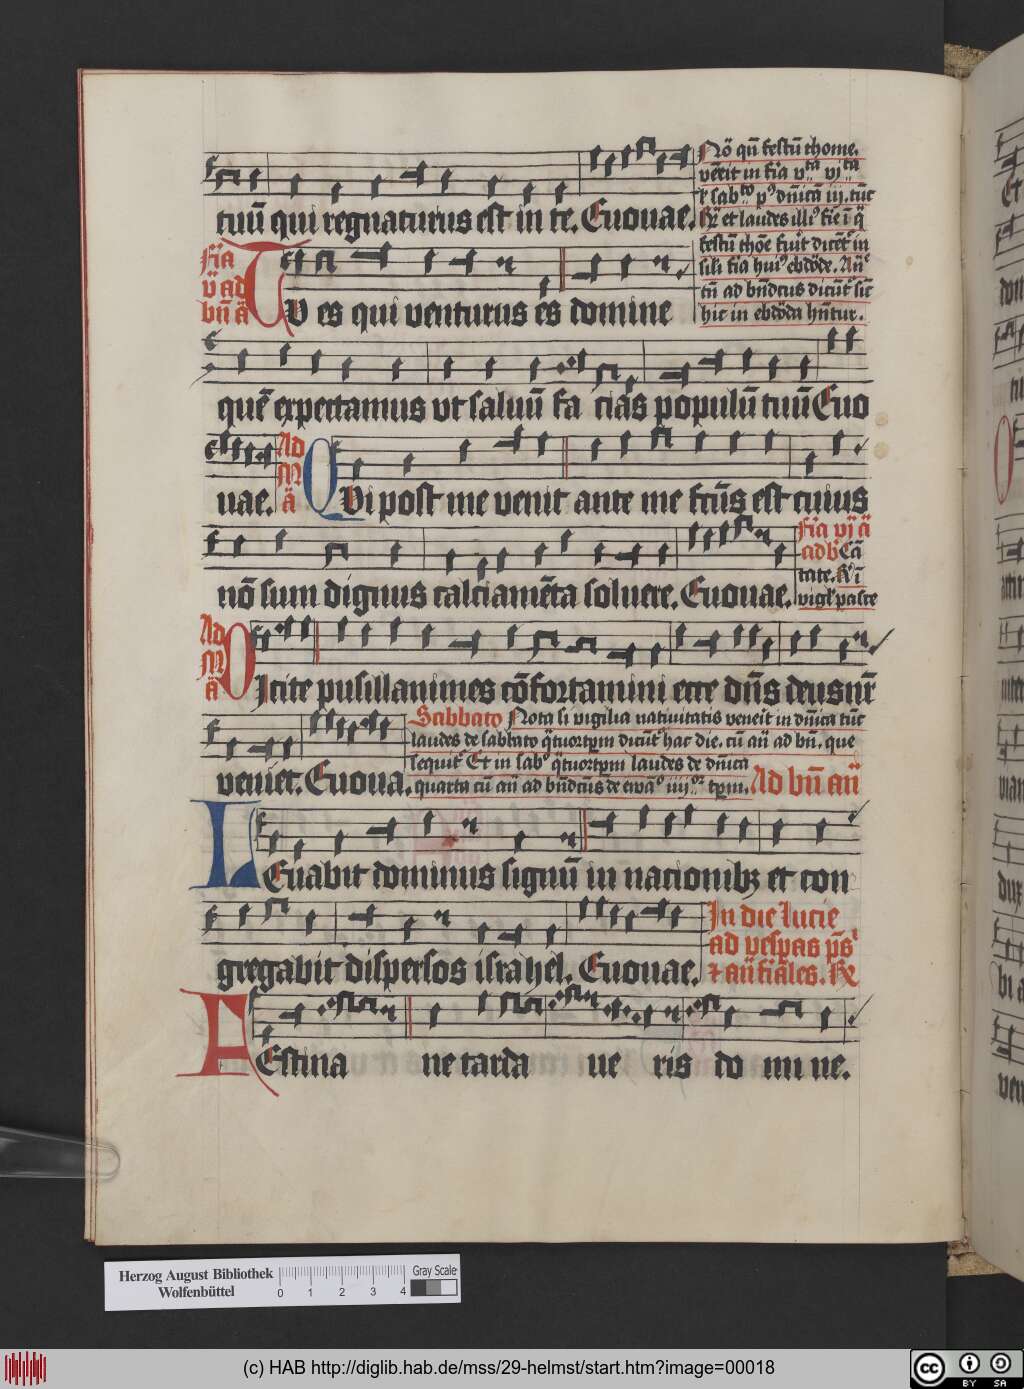 tuū qui regnaturus est in te. Euouae.
Nō qn̄ festū thome.
vēit in fīa vta vjta
ł sabto pꝰ dn̄icā iij. tūc
Rꝛ et laudes illiꝰ fīe
festū thōe fuit dicēt in
sili fīa huiꝰ ebdōde. An̄
tn̄ ad bn̄dictus dicūt sic̄
hic in ebdōda hn̄tur.
Fīa
v̄ ad
bn̄ ā
TV es qui venturus es domine
quē expectamus vt saluū fa cias populū tuū Euo
uae.
Ad
M
ā
QVi post me venit ante me fc̄us est cuius
nō sum dignus calciamēta soluere. Euouae.
Fīa vj ā
ad b Cā
tate. R̄ ī
vigł pascē
Ad
M
ā
DJcite pusillanimes cōfortamini ecce dn̄s deus nr̄
veniet. Euoua.
Sabbato Nota si vigilia natiuitatis veneīt in dn̄ica tūc
laudes de sabbato q̄tuortꝑm dicūt hac die. cū an̄ ad bn̄. que
sequit Et in sabo q̄tuortꝑm laudes de dn̄ica
quarta cū an̄ ad bn̄dc̄us de ewāo iiijor tꝑm. Ad bn̄ an̄
LEuabit dominus signū in nacionibꝫ et con
gregabit dispersos israhel. Euouae.
In die lucie
ad vespas ps̄
⁊ an̄ fīales. Rꝛ
FEstina ne tarda ue ris do mi ne.
Herzog August Bibliothek
Wolfenbüttel
0 1 2 3 4
Gray Scale
(c) HAB http://diglib.hab.de/mss/29-helmst/start.htm?image=00018
cc BY SA